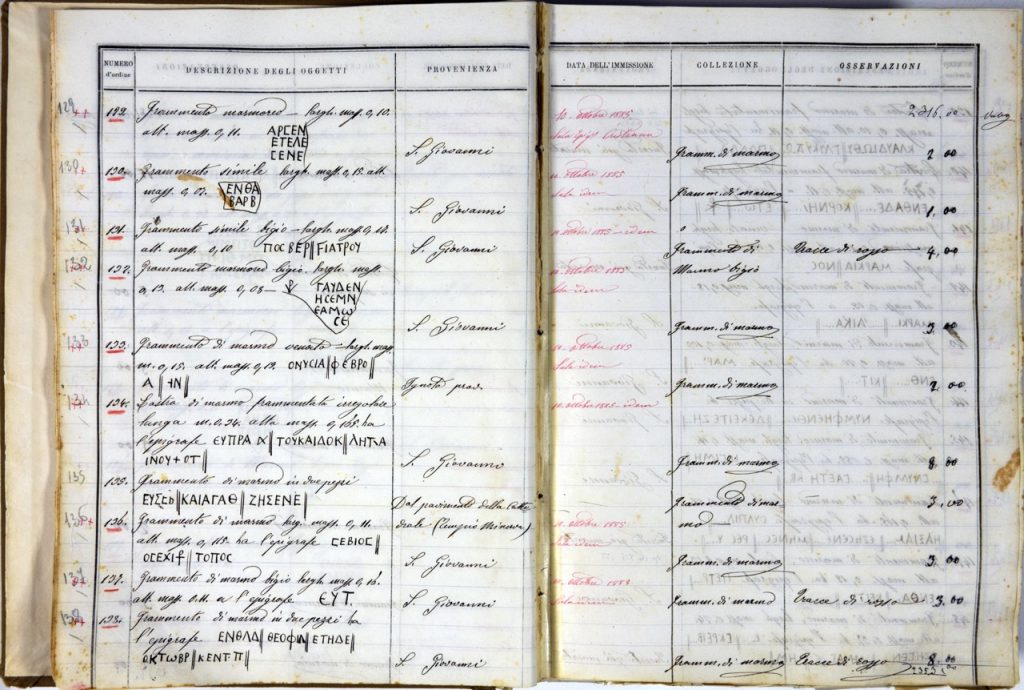 NUMERO d'ordine
DESCRIZIONE DEGLI OGGETTI
PROVENIENZA
DATA DELL'IMMISSIONE
COLLEZIONE
OSSERVAZIONI
2316.00
129
129. Frammento marmoreo – largh. mass. 0,10.
alt. mass. 0,11.
ΑΡΓΕΝ
ΕΤΕΛΕ
CΕΝΕ
S. Giovanni
10. ottobre 1885
Framm. di marmo
2 00
130
130. Frammento simile largh. mass. 0,15. alt.
mass. 0,07.
ΕΝΘΑ
ΒΑΡΒ
S. Giovanni
10. ottobre 1885
Sala idem
Framm. di marmo
1. 00
131
131. Frammento simile bigio – largh. mass. 0,18.
alt. mass. 0,10 ΠΟCΒΕΡ‖ΓΙΑΤΡΟΥ
S. Giovanni
10. ottobre 1885 – idem
Frammenti di
Marmo bigio
tracce di rosso
4. 00
132
132. Frammento marmoreo bigio, largh. mass.
0,19. alt. mass. 0,08 –
ΓΑΥΔΕΝ
ΗCΕΜΝ
ΕΑΜѠ
CΕ
S. Giovanni
10. ottobre 1885
Sala idem
Framm. di marmo
3 00
133
133. Frammento di marmo venato – largh. mass.
m. 0,15. alt. mass. 0,19. ΟΝΥCΙΑ‖ΦΕΒΡΟ
Α‖ΗΝ‖
Ignota prov.
10. ottobre 1885
Sala idem
Framm. di marmo
2 00
134
134. Lastra di marmo frammentata irregolare
lunga m. 0,24. alta mass. 0,165. ha
l'epigrafe ΕΥΠΡΑ‖ΤΟΥΚΑΙΔΟΚ‖ΛΗΤΙΑ
ΙΝΟΥ+ΟΤ‖
S. Giovanni
10. ottobre 1885 – idem
Framm. di marmo
8 00
135
135. Frammento di marmo in due pezzi
ΕΥCΕΒ‖ΚΑΙΑΓΑΘ‖ΖΗCΕΝΕ
Dal pavimento della Catte
drale (tempio Minerva)
Frammento di mar
mo
3, 00
136
136. Frammento di marmo larg. mass. 0,11.
alt. mass. 0,115. ha l'epigrafe CΕΒΙΟC
ΟCΕΧΙϯ‖ΤΟΠΟC
S. Giovanni
10. ottobre 1885
Framm. di marmo
3 00
137
137. Frammento di marmo bigio largh. mass. 0,16.
alt. mass. 0.11. a l'epigrafe ΕΥΤ.
S. Giovanni
10. ottobre 1885
Sala idem
Framm. di marmo
tracce di rosso
3. 00
138
138. Frammento di marmo in due pezzi ha
l'epigrafe ΕΝΘΛΔ‖ΘΕΟΦΙΛ‖ΕΤΗΔΕ
ΟΚΤѠΒΡ‖ΚΕΝΤ·Π‖
S. Giovanni
Framm. di marmo
tracce di rosso
8. 00
2353 00